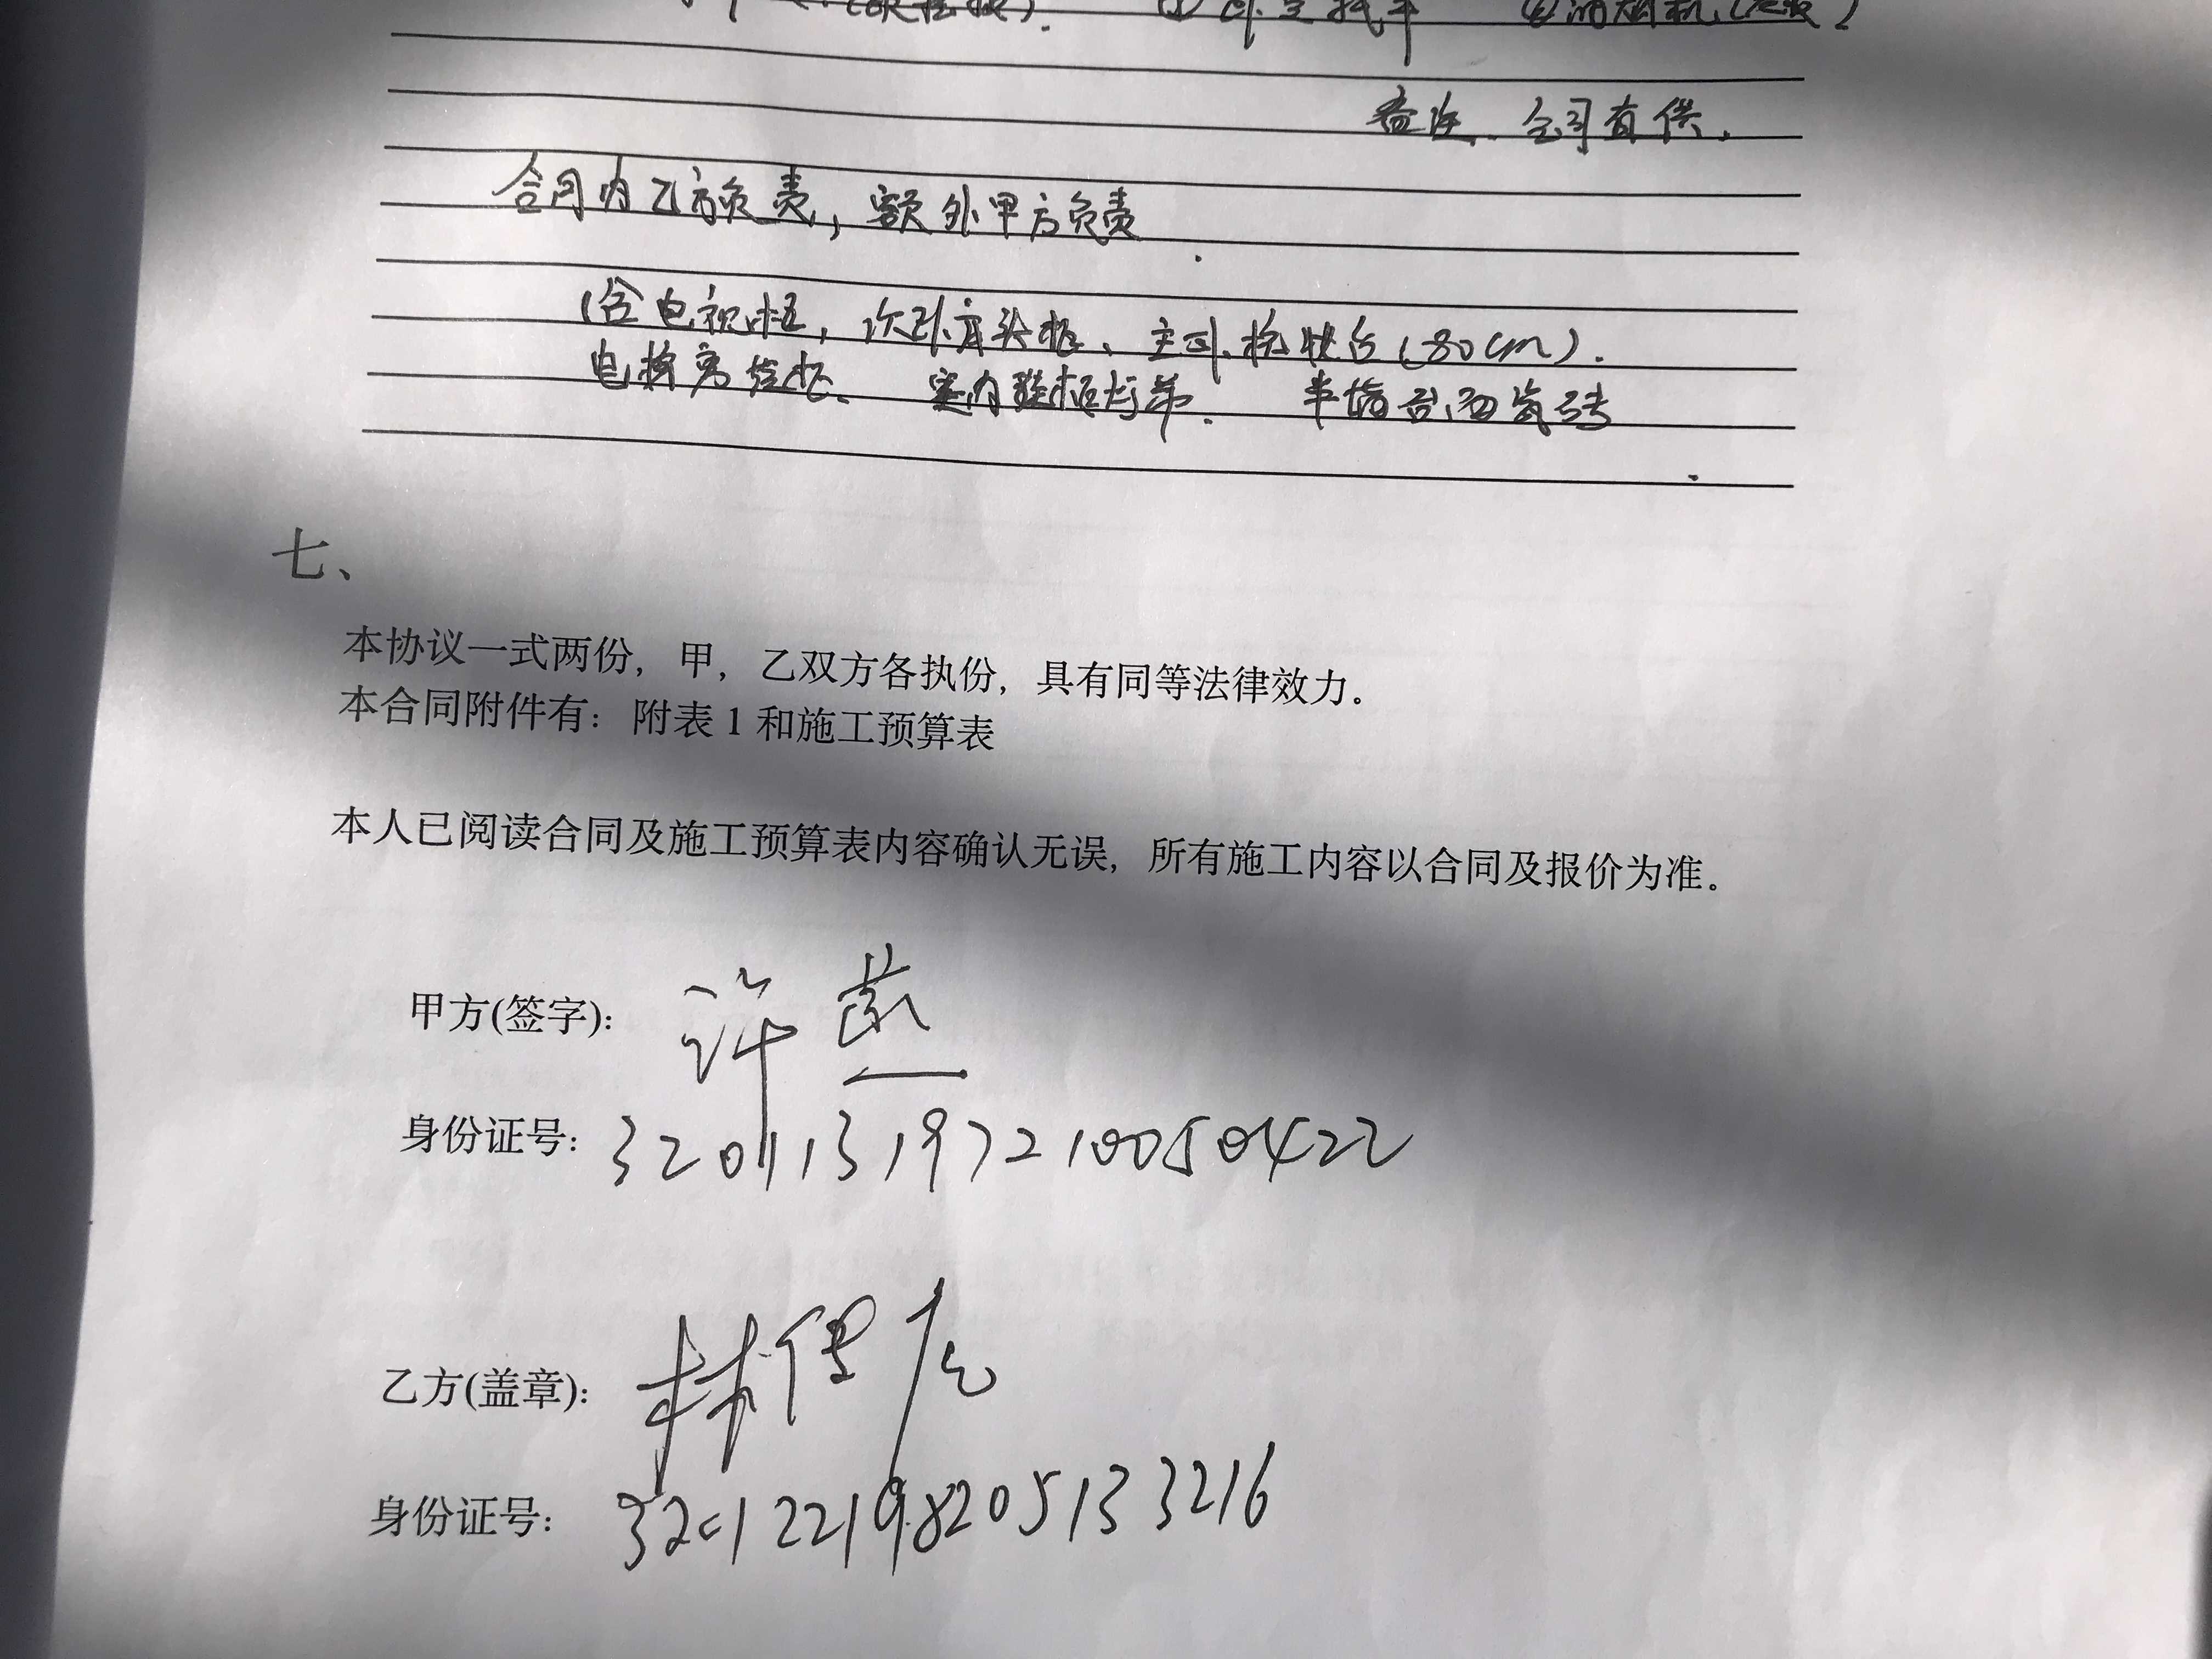 备注、公司有供.
合同内乙方负责，额外甲方负责.
(含电视柜，次卧床头柜、主卧梳妆台(80cm).
室内 半墙台面瓷砖.
七、
本协议一式两份，甲，乙双方各执份，具有同等法律效力。
本合同附件有：附表1和施工预算表
本人已阅读合同及施工预算表内容确认无误，所有施工内容以合同及报价为准。
甲方(签字)：许燕
身份证号：320113197210050422
乙方(盖章)：林
身份证号：321221198205133216